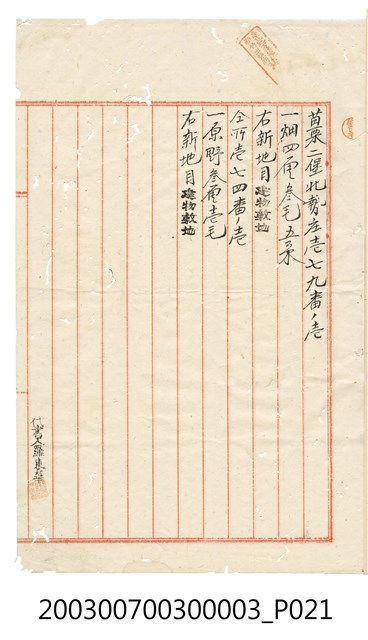 苗栗二堡北勢庄壱七九番ノ壱
一畑四厘叄毛五糸
右新地目建物敷地
仝所壱七四番ノ壱
一原野叄厘壱毛
右新地目建物敷地
代書人羅
200300700300003_P021